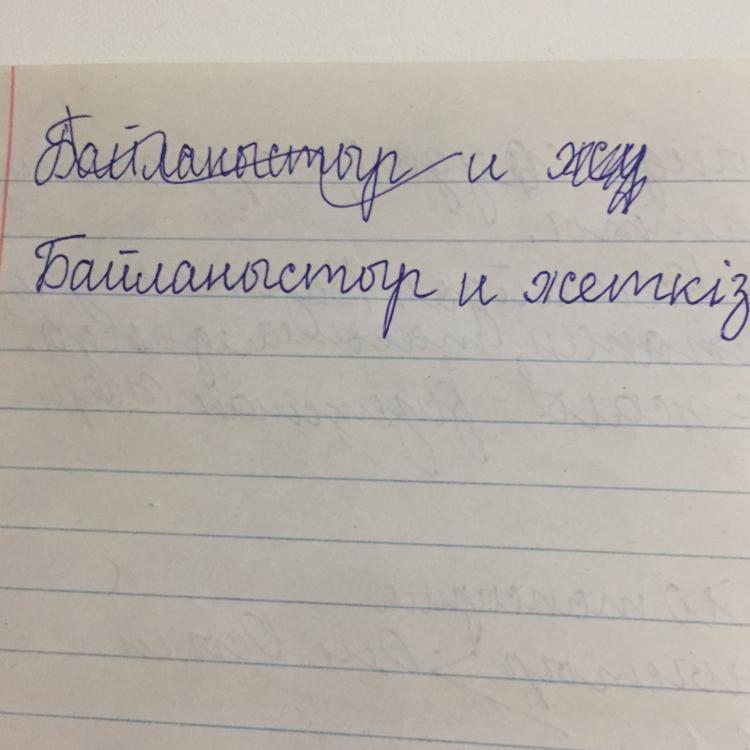 Байланыстыр и
Байланыстыр и жеткіз